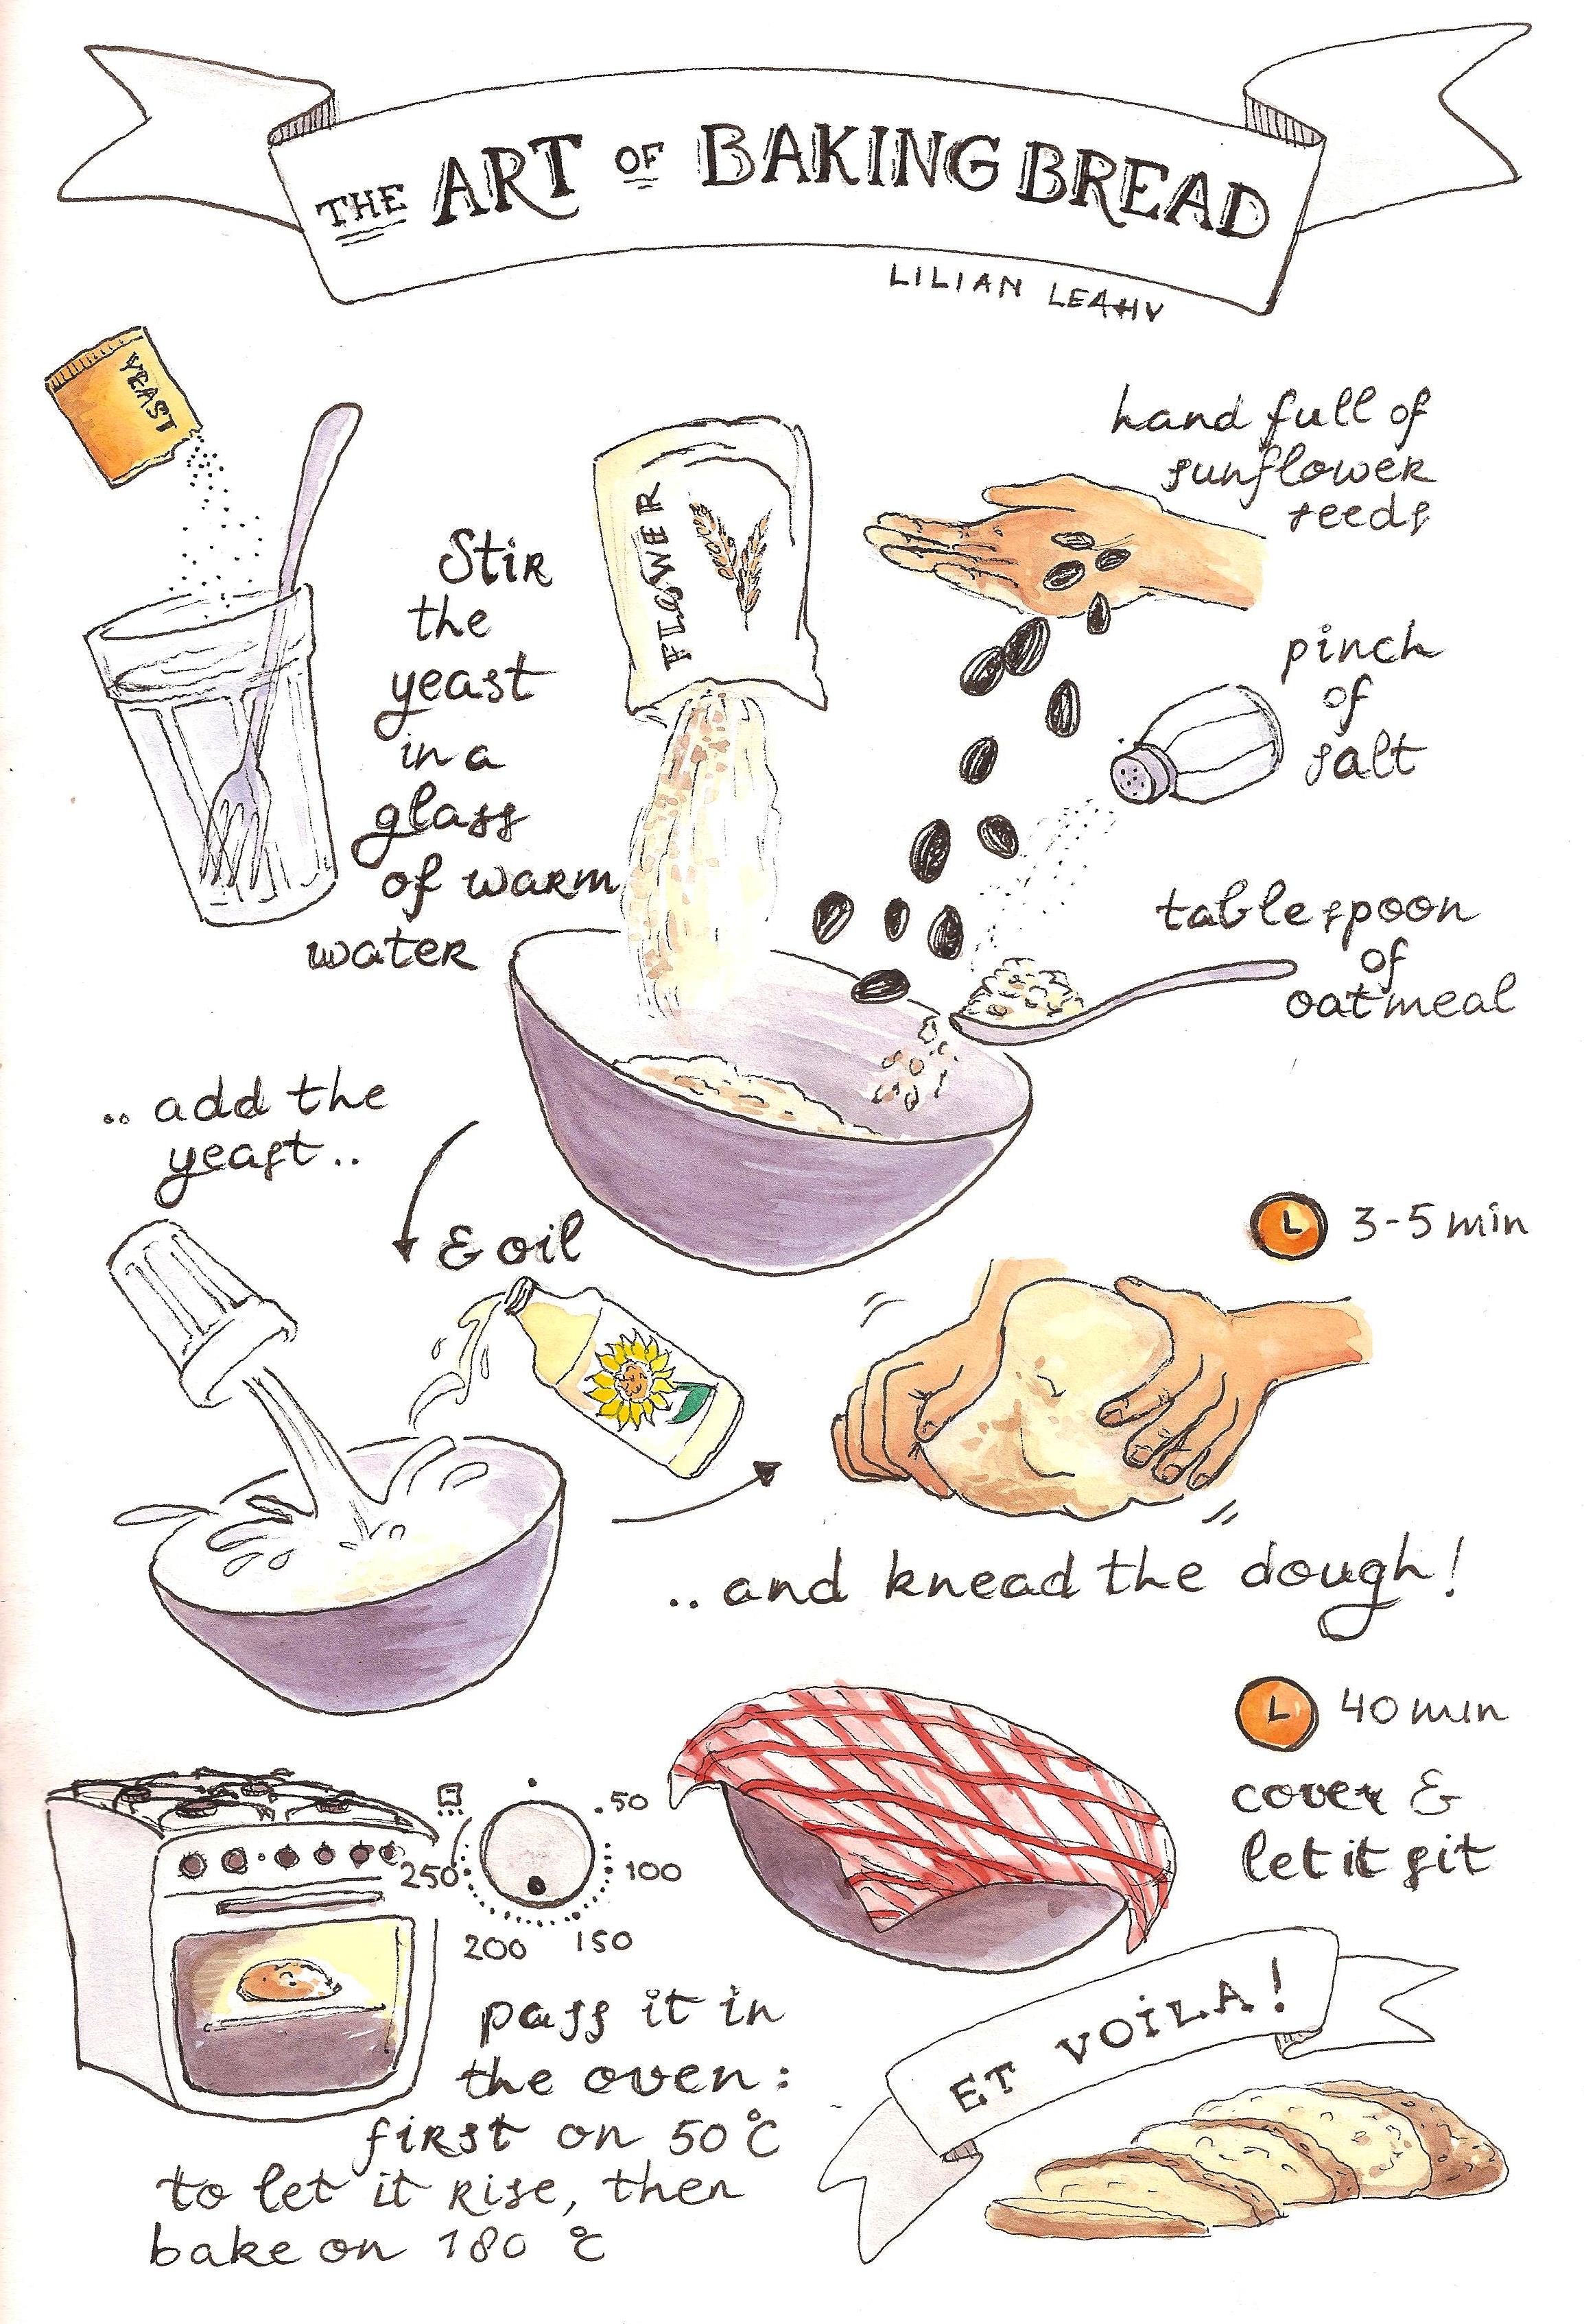 THE ART OF BAKING BREAD
LILIAN LEAHY
YEAST
Stir
the
yeast
in a
glass
of warm
water
FLOWER
hand full of
sunflower
seeds
pinch
of
salt
tablespoon
of
oatmeal
.. add the
yeast ..
& oil
3-5 min
.. and knead the dough!
40 min
cover &
let it sit
.50
100
150
200
250
pass it in
the oven:
first on 50°C
to let it rise, then
bake on 180 °C
ET VOiLA!